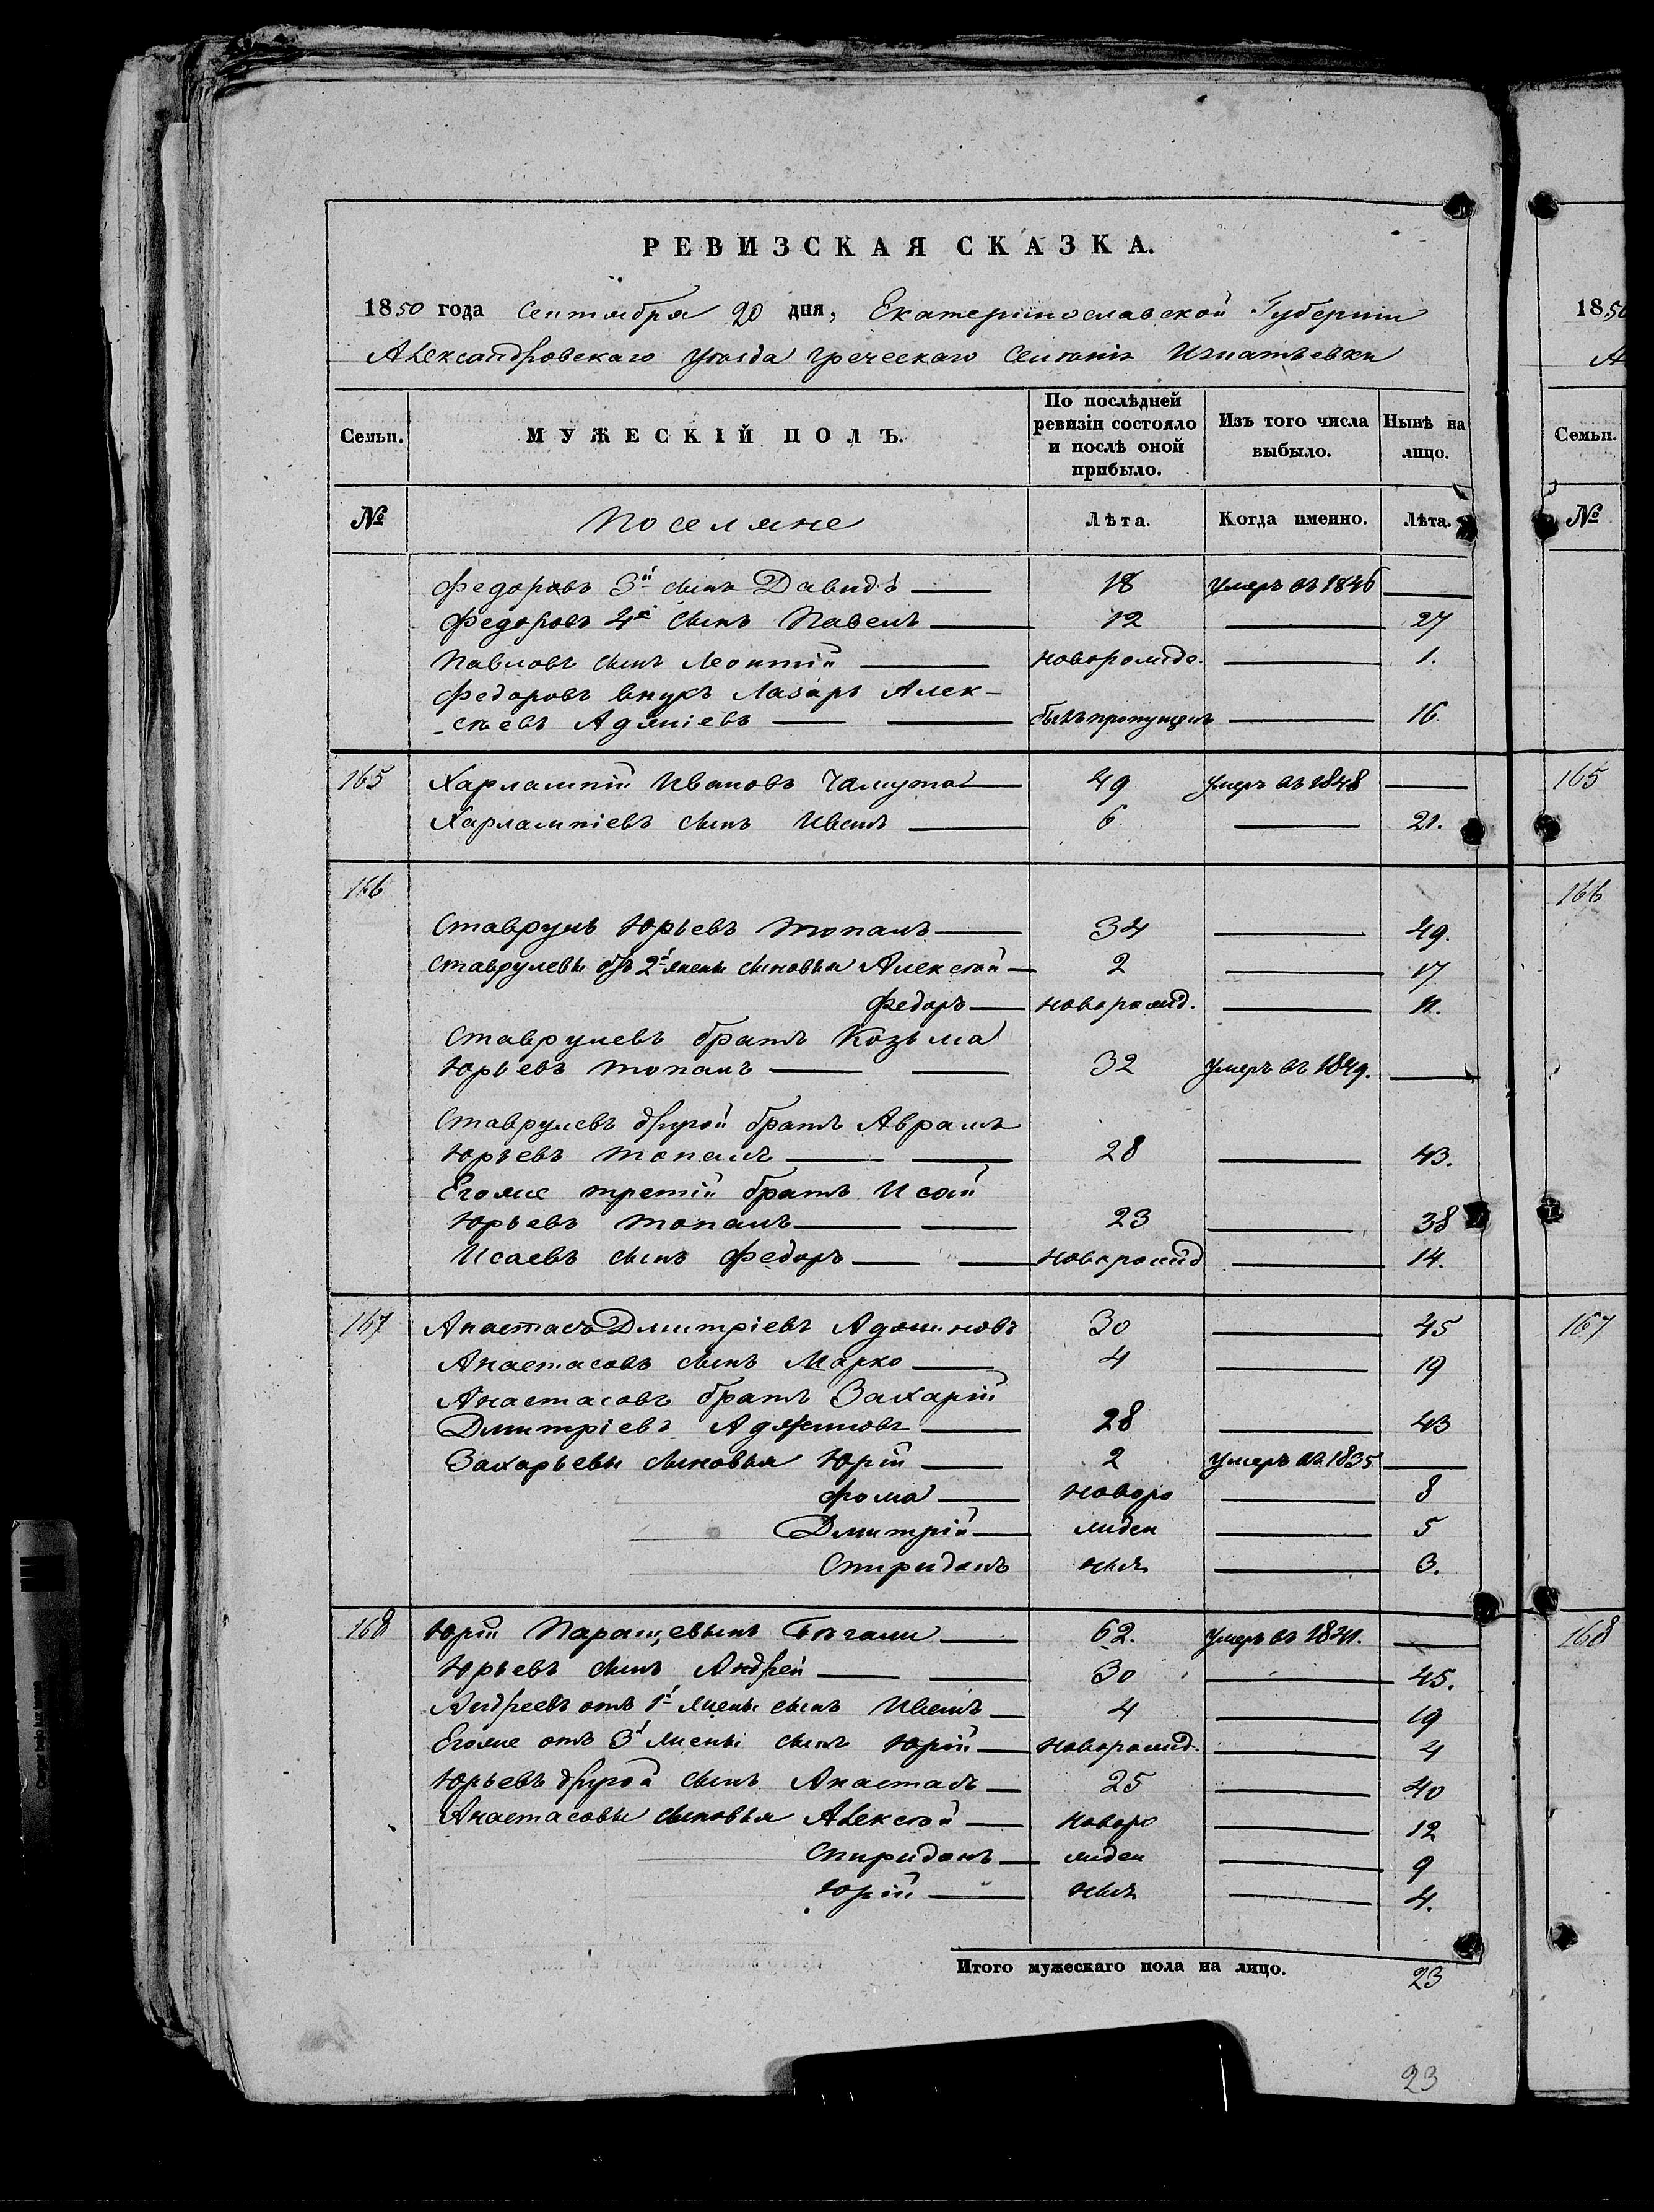 РЕВИЗСКАЯ СКАЗКА.
1850 года Сентября 20 дня, Екатеринославской Губернии
Александровскаго уѣзда греческаго Селенія Игнатьевки
Семьи. МУЖЕСКІЙ ПОЛЪ. По послѣдней ревизіи состояло и послѣ оной прибыло. Изъ того числа выбыло. Нынѣ на лицо.
№ Поселяне Лѣта. Когда именно. Лѣта.
Федоровъ 3й сынъ Давидъ 18 умеръ въ 1846
Федоровъ 4й сынъ Павелъ 12 27
Павловъ сынъ Леонтій новорожде. 1.
Федоровъ внукъ Лазарь Алек-
сѣевъ былъ пропущенъ 16.
165 Харлампій Ивановъ 49 умеръ въ 1848
Харлампіевъ сынъ Иванъ 6 21.
166
Ставрулъ Юрьевъ Топалъ 34 49.
Ставрулевы отъ 2й жены сыновья Алексѣй 2 17
Федоръ новорожд. 11.
Ставрулевъ братъ Козьма
Юрьевъ Топалъ 32 умеръ въ 1849.
Ставрулевъ другой братъ Аврамъ
Юрьевъ Топалъ 28 43.
Егоже третій братъ Исай
Юрьевъ Топалъ 23 38
Исаевъ сынъ Федоръ новорожд 14.
167 Анастасъ Дмитріевъ Аджиновъ 30 45
Анастасовъ сынъ Марко 4 19
Анастасовъ братъ Захарій
Дмитріевъ Аджиновъ 28 43
Захарьевы сыновья Юрій 2 умеръ въ 1835
Фома новоро 8
Дмитрій жден 5
Спиридонъ ныя 3.
168 Юрій 62. умеръ въ 1841.
Юрьевъ сынъ Андрей 30 45.
Андреевъ отъ 1й жены сынъ Иванъ 4 19
Егоже отъ 3й жены сынъ Юрій новорожд. 4
Юрьевъ другой сынъ Анастасъ 25 40
Анастасовы сыновья Алексѣй новоро 12
Спиридонъ жден 9
Юрій ныя 4.
Итого мужескаго пола на лицо. 23
23
1850
А
Семьи.
№
165
166
167
168